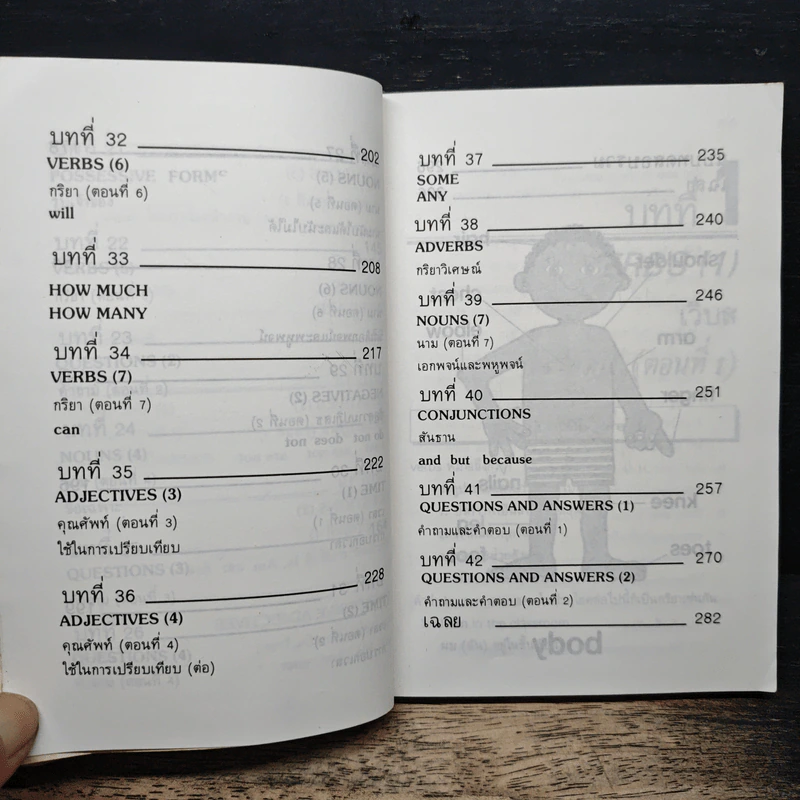 บทที่ 32 202
VERBS (6)
กริยา (ตอนที่ 6)
will
บทที่ 33 208
HOW MUCH
HOW MANY
บทที่ 34 217
VERBS (7)
กริยา (ตอนที่ 7)
can
บทที่ 35 222
ADJECTIVES (3)
คุณศัพท์ (ตอนที่ 3)
ใช้ในการเปรียบเทียบ
บทที่ 36 228
ADJECTIVES (4)
คุณศัพท์ (ตอนที่ 4)
ใช้ในการเปรียบเทียบ (ต่อ)
บทที่ 37 235
SOME
ANY
บทที่ 38 240
ADVERBS
กริยาวิเศษณ์
บทที่ 39 246
NOUNS (7)
นาม (ตอนที่ 7)
เอกพจน์และพหูพจน์
บทที่ 40 251
CONJUNCTIONS
สันธาน
and but because
บทที่ 41 257
QUESTIONS AND ANSWERS (1)
คำถามและคำตอบ (ตอนที่ 1)
บทที่ 42 270
QUESTIONS AND ANSWERS (2)
คำถามและคำตอบ (ตอนที่ 2)
เฉลย 282